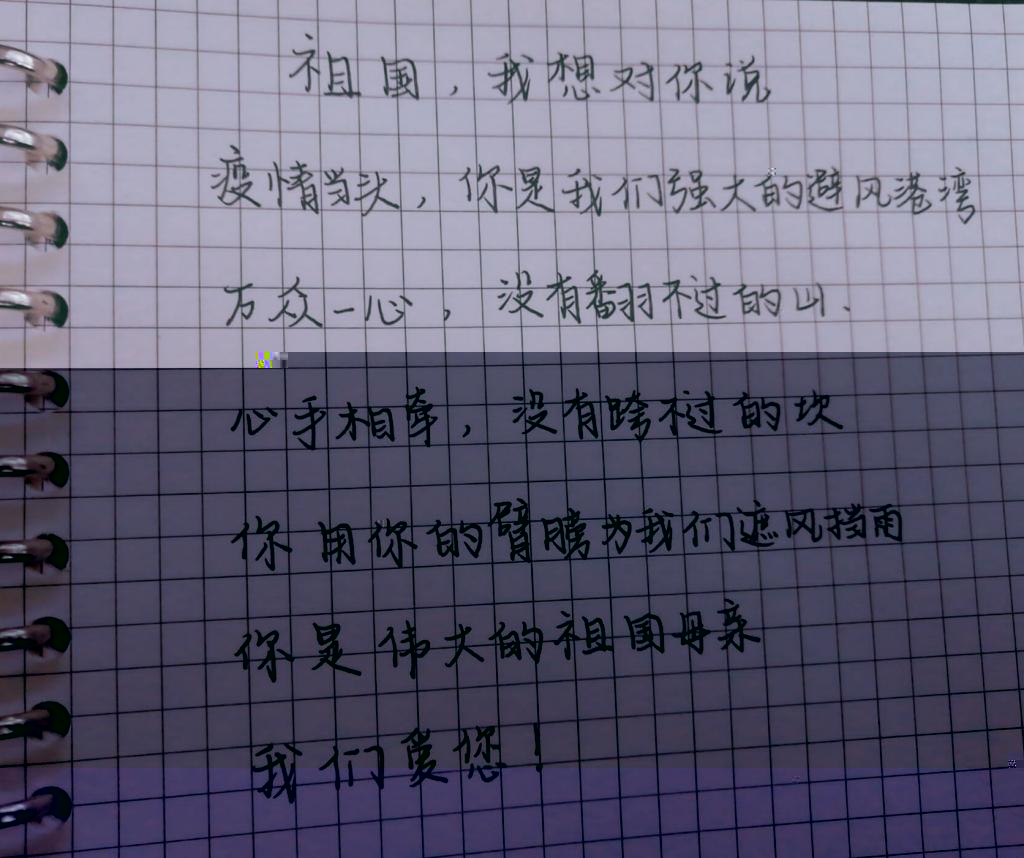 祖国，我想对你说
疫情当头，你是我们强大的避风港湾
万众一心，没有翻不过的山.
心手相牵，没有跨不过的坎
你用你的臂膀为我们遮风挡雨
你是伟大的祖国母亲
我们爱您！